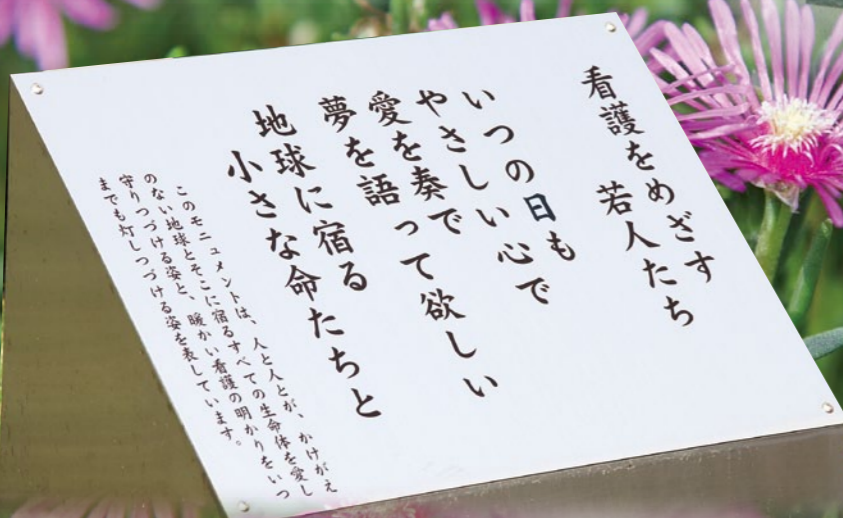 看護をめざす
若人たち
いつの日も
やさしい心で
愛を奏で
夢を語って欲しい
地球に宿る
小さな命たちと
このモニュメントは、人と人とが、かけがえ
のない地球とそこに宿るすべての生命体を愛し
守りつづける姿と、暖かい看護の明かりをいつ
までも灯しつづける姿を表しています。